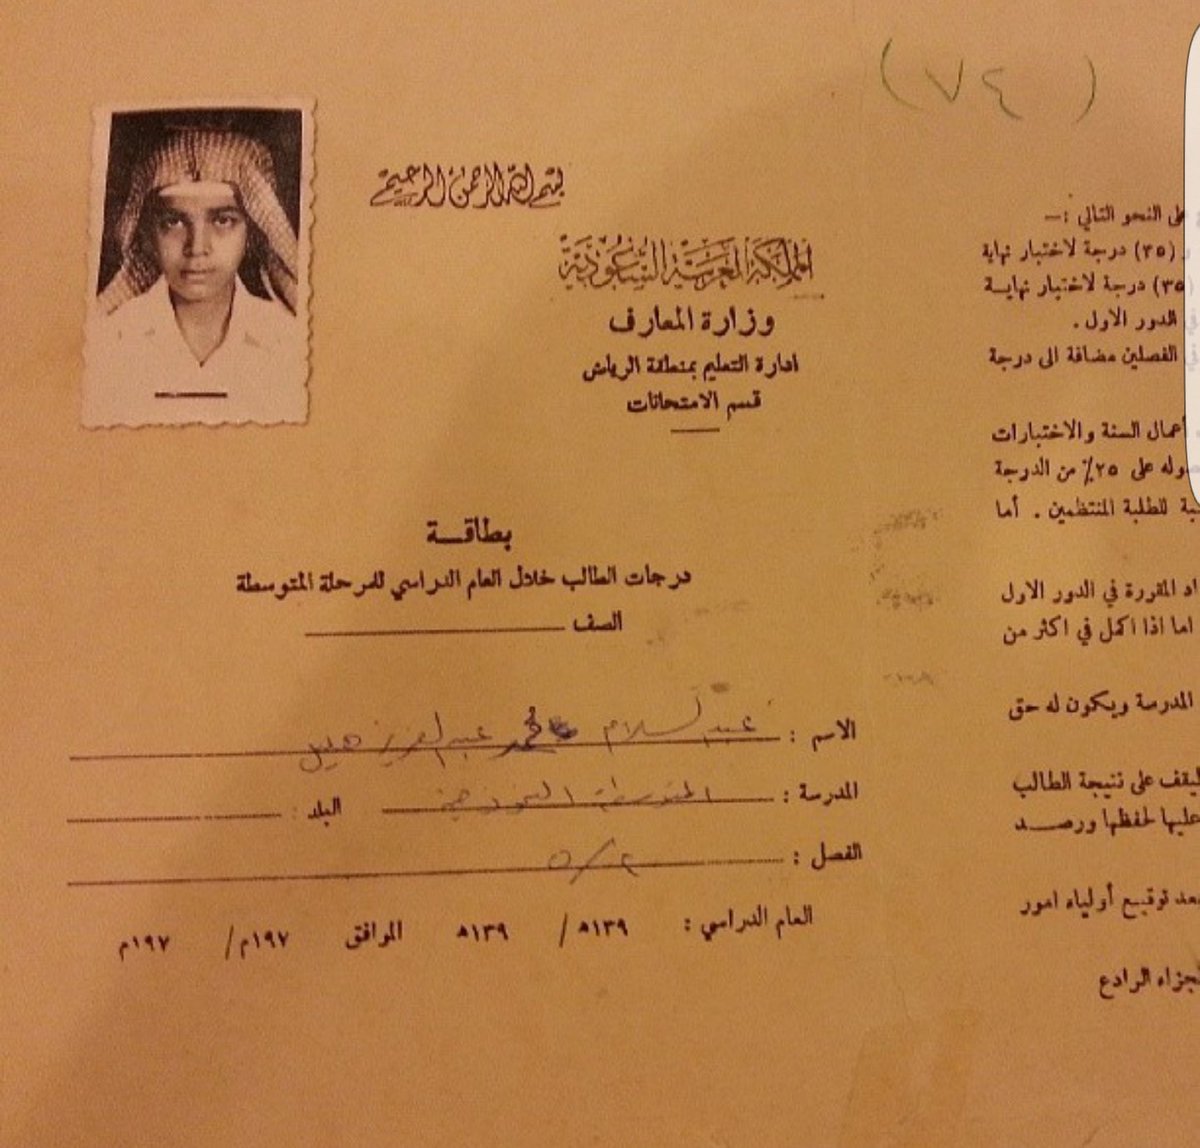 (٧٤)
بسم الله الرحمن الرحيم
المملكة العربية السعودية
وزارة المعارف
ادارة التعليم بمنطقة الرياض
قسم الامتحانات
بطاقة
درجات الطالب خلال العام الدراسي للمرحلة المتوسطة
الصف
الاسم : عبدالسلام محمد عبدالعزيز هليل
المدرسة : المتوسطة النموذجية البلد :
الفصل : ٢/٥
العام الدراسي : ١٣٩هـ / ١٣٩هـ الموافق ١٩٧م / ١٩٧م
على النحو التالي :—
(٣٥) درجة لاختبار نهاية
(٣٥) درجة لاختبار نهايـة
الدور الاول .
الفصلين مضافة الى درجة
أعمال السنة والاختبارات
على ٢٥٪ من الدرجة
للطلبة المنتظمين . أما
المقررة في الدور الاول
اما اذا اكمل في اكثر من
المدرسة ويكون له حق
ليقف على نتيجة الطالب
عليها لحفظها ورصـــد
بعد توقيع أولياء امور
الرادع